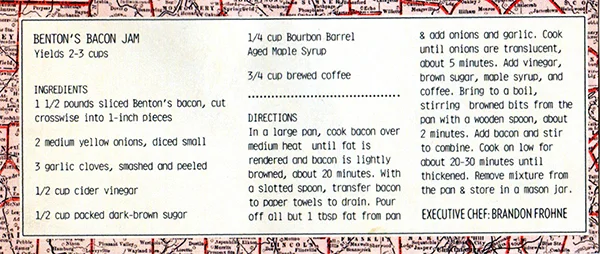 BENTON'S BACON JAM
Yields 2-3 cups
INGREDIENTS
1 1/2 pounds sliced Benton's bacon, cut
crosswise into 1-inch pieces
2 medium yellow onions, diced small
3 garlic cloves, smashed and peeled
1/2 cup cider vinegar
1/2 cup packed dark-brown sugar
1/4 cup Bourbon Barrel
Aged Maple Syrup
3/4 cup brewed coffee
DIRECTIONS
In a large pan, cook bacon over
medium heat until fat is
rendered and bacon is lightly
browned, about 20 minutes. With
a slotted spoon, transfer bacon
to paper towels to drain. Pour
off all but 1 tbsp fat from pan
& add onions and garlic. Cook
until onions are translucent,
about 5 minutes. Add vinegar,
brown sugar, maple syrup, and
coffee. Bring to a boil,
stirring browned bits from the
pan with a wooden spoon, about
2 minutes. Add bacon and stir
to combine. Cook on low for
about 20-30 minutes until
thickened. Remove mixture from
the pan & store in a mason jar.
EXECUTIVE CHEF: BRANDON FROHNE